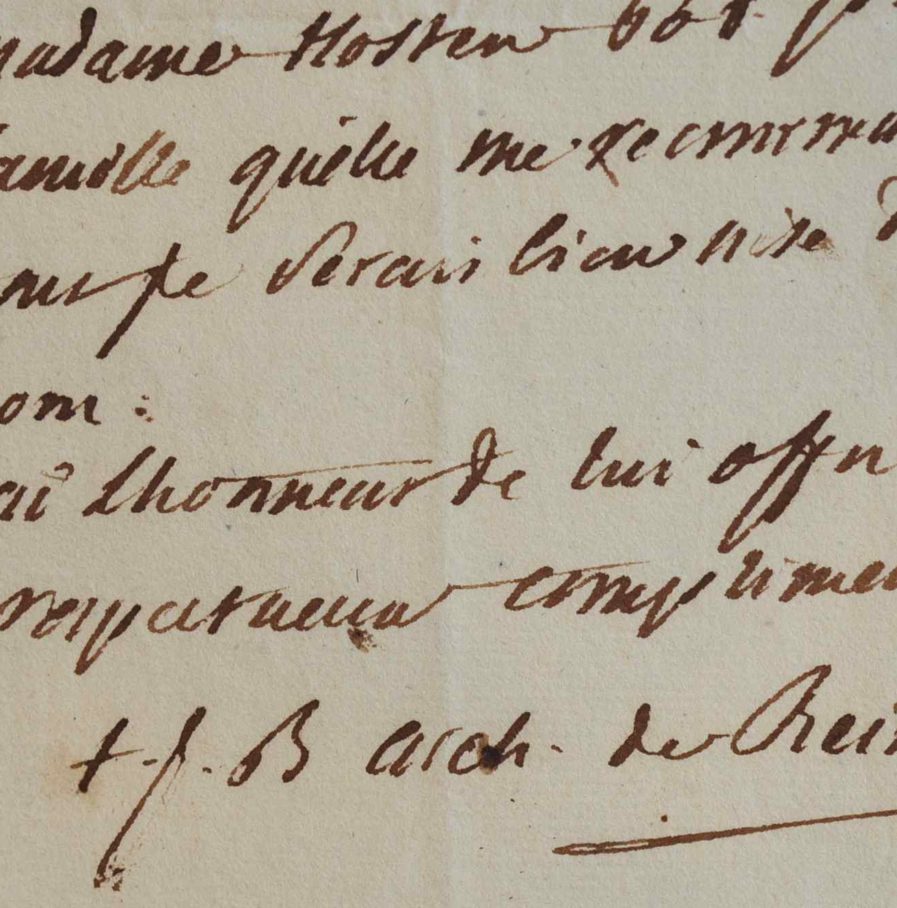 madame Hosten
famille quelle me recomma
je serais bien aise d
om :
ai Lhonneur de lui offrir
respectueux complimen
+ j. B arch. de Rei